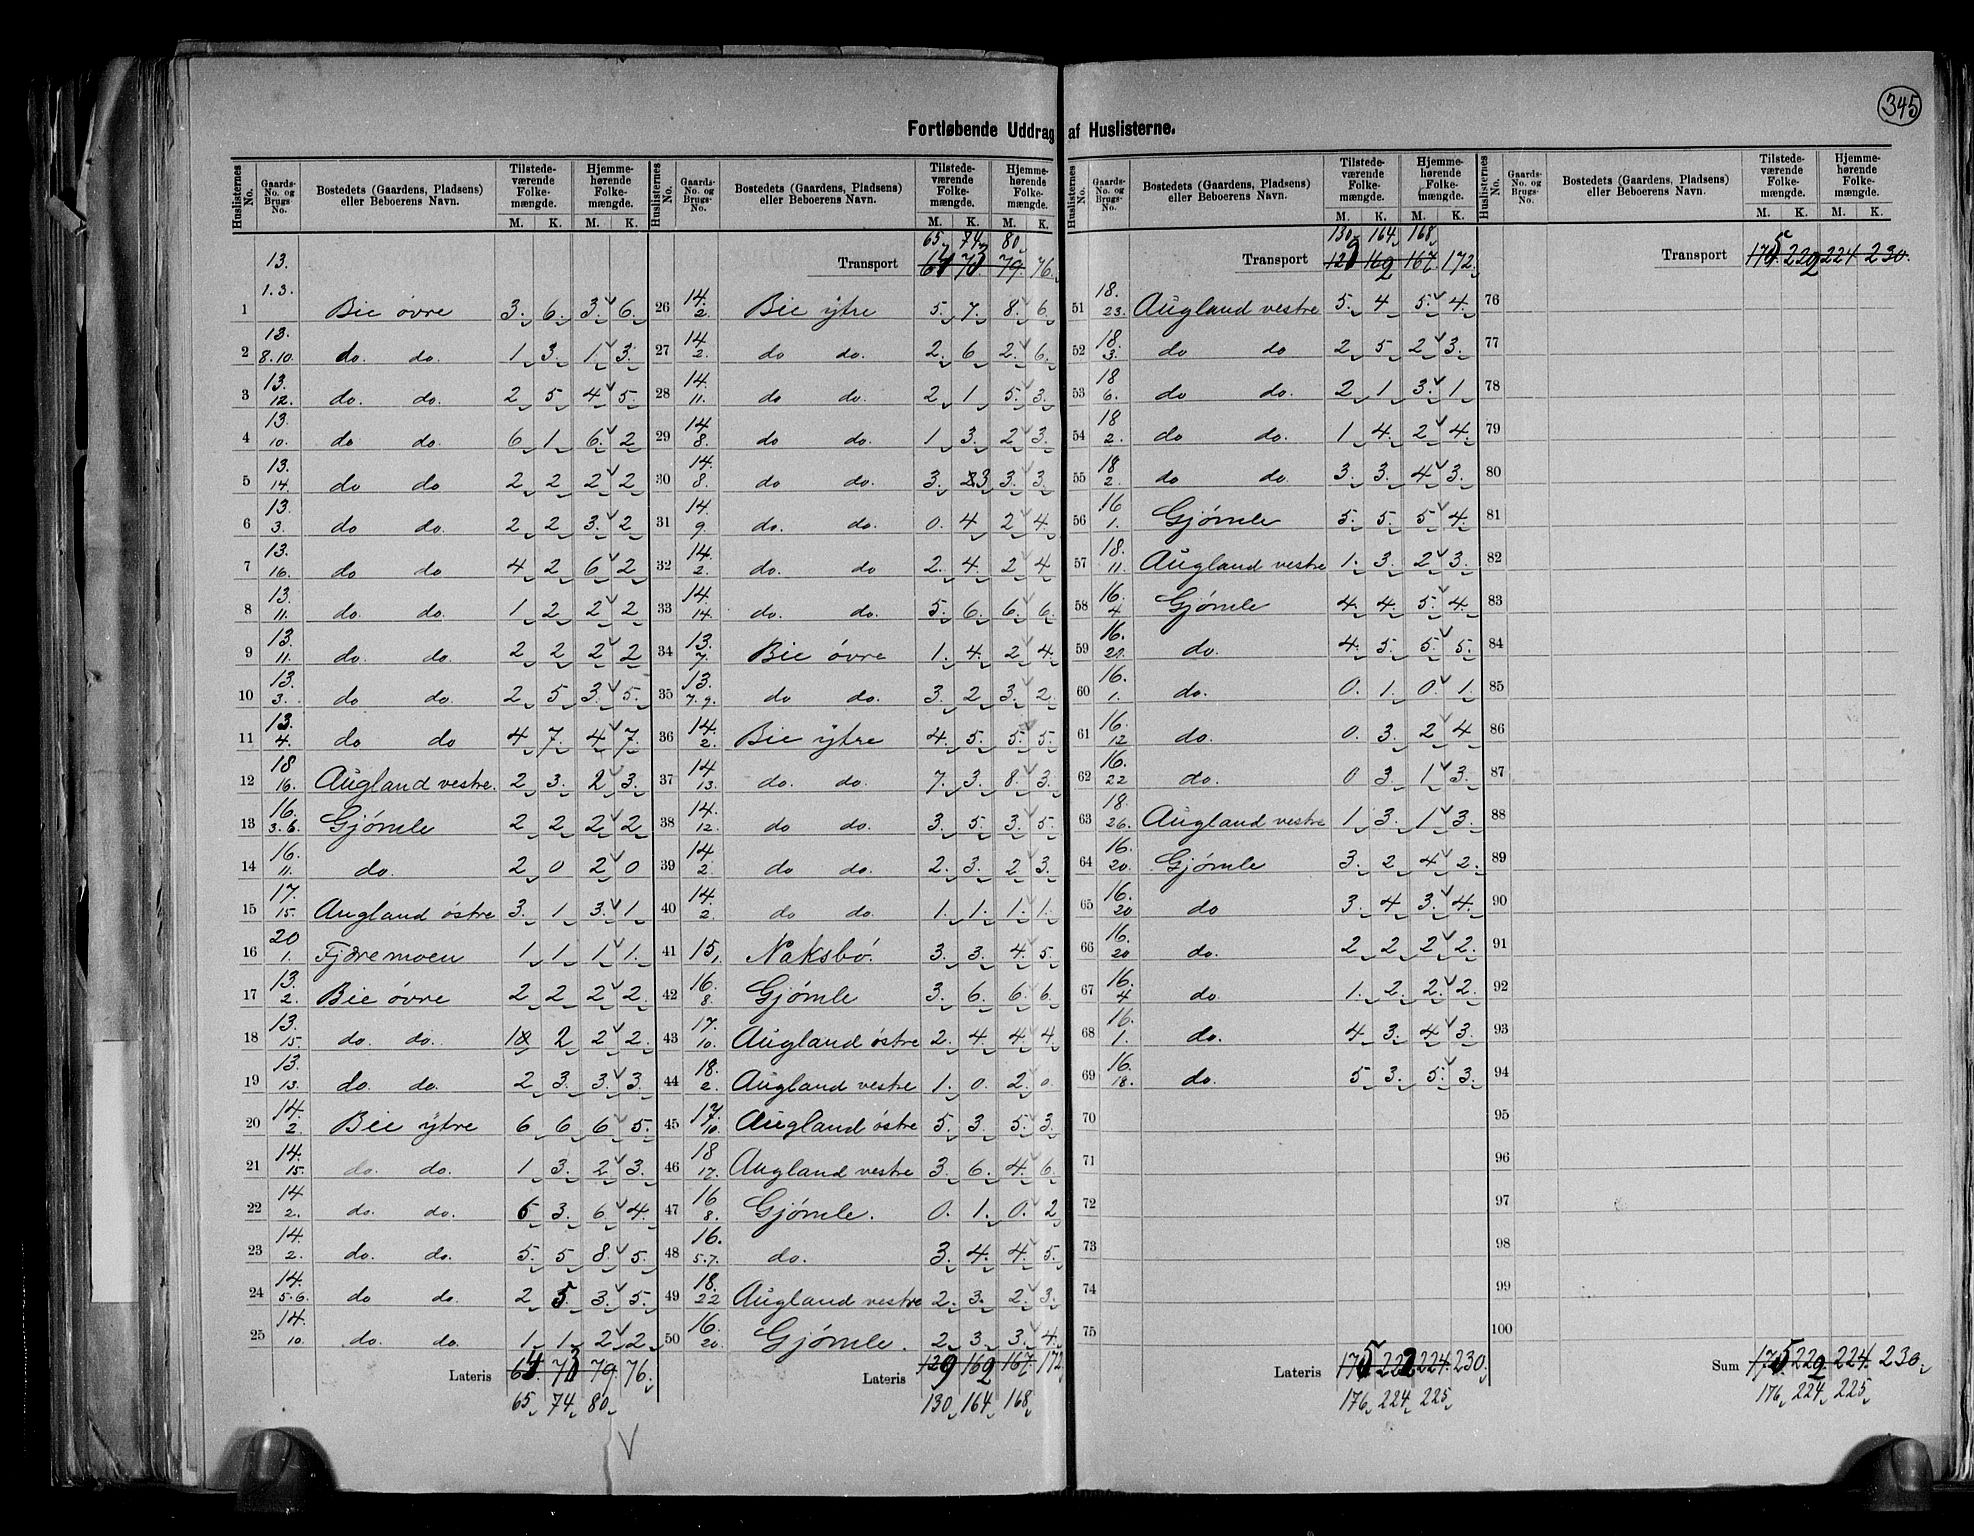 345
Fortløbende Uddrag af Huslisterne.
Huslisternes No. | Gaards-No. og Brugs-No. | Bostedets (Gaardens, Pladsens) eller Beboerens Navn. | Tilstede-værende Folke-mængde. M. K. | Hjemme-hørende Folke-mængde. M. K.
1 | 13. 13. 1.3. | Bie övre | 3. 6. | 3. 6.
2 | 13. 8.10. | do. do. | 1. 3. | 1. 3.
3 | 13. 12. | do. do. | 2 5 | 4 5.
4 | 13. 10. | do do | 6 1 | 6. 2
5 | 13. 14. | do do | 2 2 | 2 2
6 | 13. 3. | do do | 2 2 | 3. 2
7 | 13. 16. | do do | 4 2 | 6 2
8 | 13. 11. | do. do. | 1 2 | 2 2
9 | 13. 11. | do. do. | 2 2 | 2 2
10 | 13. 3. | do do | 2 5 | 3. 5.
11 | 13. 4. | do do | 4 7. | 4 7.
12 | 18 16. | Augland vestre. | 2 3. | 2 3.
13 | 16. 3.6. | Gjömle | 2 2 | 2 2
14 | 16. 11. | do. | 2 0 | 2 0
15 | 17. 15. | Augland östre | 3. 1 | 3. 1.
16 | 20 1. | Fjæremoen | 1 1 | 1 1.
17 | 13. 2. | Bie övre | 2 2 | 2 2.
18 | 13. 15. | do. do. | 1 2 | 2 2.
19 | 13. 13. | do do. | 2 3. | 3. 3.
20 | 14. 2. | Bie ytre | 6 6 | 6 5.
21 | 14. 15. | do. do. | 1 3. | 2 3.
22 | 14 2. | do. do. | 5 3. | 6 4.
23 | 14. 2. | do. do. | 5. 5 | 8. 5.
24 | 14. 5.6. | do do. | 2 5. | 3. 5.
25 | 14. 10. | do. do. | 1. 1. | 2 2.
Lateris 76.
65 74 80
65 74 80
Transport 76.
26 | 14. 2. | Bie ytre | 5. 7. | 8. 6.
27 | 14. 2. | do do. | 2. 6 | 2. 6.
28 | 14. 11. | do do. | 2. 1 | 5. 3.
29 | 14. 8. | do do. | 1 3. | 2 3.
30 | 14. 8. | do do. | 3. 3 | 3. 3.
31 | 14. 9. | do. do. | 0. 4 | 2 4.
32 | 14. 2. | do. do | 2. 4. | 2 4
33 | 14. 14. | do. do. | 5. 6. | 6. 6.
34 | 13. 7. | Bie övre | 1. 4. | 2 4.
35 | 13. 7.9. | do do. | 3. 2 | 3. 2.
36 | 14. 2. | Bie ytre | 4. 5. | 5. 5.
37 | 14 13. | do. do. | 7. 3. | 8. 3.
38 | 14. 12. | do do. | 3. 5. | 3. 5.
39 | 14. 2. | do do. | 2. 3. | 2 3.
40 | 14. 2. | do do. | 1. 1. | 1. 1.
41 | 15, | Naksbö. | 3. 3. | 4. 5.
42 | 16. 8. | Gjömle | 3. 6. | 6. 6.
43 | 17. 10. | Augland östre | 2. 4. | 4. 4
44 | 18. 2. | Augland vestre | 1. 0. | 2. 0.
45 | 17. 10. | Augland östre | 5. 3. | 5. 3.
46 | 18 17. | Augland vestre | 3. 6. | 4. 6.
47 | 16 8. | Gjömle. | 0. 1. | 0. 2
48 | 16. 5.7. | do. | 3. 4. | 4. 5.
49 | 18. 22 | Augland vestre | 2. 3. | 2. 3.
50 | 16. 20. | Gjömle. | 2. 3. | 3. 4.
Lateris 129 162 167. 172
130 164 168
130 164 168
Transport 129 162 167. 172.
51 | 18. 23. | Augland vestre | 5. 4. | 5. 4.
52 | 18. 3. | do do | 2. 5 | 2 3.
53 | 18 6. | do do. | 2 1 | 3. 1
54 | 18 2. | do do. | 1 4. | 2 4.
55 | 18 2. | do do. | 3. 3. | 4 3.
56 | 16 1. | Gjömle | 5. 5. | 5. 4.
57 | 18. 11. | Augland vestre | 1. 3. | 2 3.
58 | 16. 4 | Gjömle | 4. 4. | 5. 4.
59 | 16. | do. | 4. 5. | 5. 5.
60 | 16. 1. | do. | 0. 1. | 0. 1.
61 | 16. 12 | do. | 0. 3. | 2 4
62 | 16. 22 | do. | 0 3. | 1 3.
63 | 18. 26. | Augland vestre | 1 3. | 1 3.
64 | 16. 20. | Gjömle | 3. 2 | 4 2.
65 | 16. 20 | do | 3. 4 | 3. 4.
66 | 16. 20 | do. | 2 2 | 2 2.
67 | 16. 4 | do. | 1. 2. | 2. 2.
68 | 16. 1. | do. | 4 3. | 4 3.
69 | 16. 18. | do. | 5. 3. | 5. 3.
70
71
72
73
74
75
Lateris 175 222 224. 230.
176 224 225
Transport 175 222 224. 230.
76
77
78
79
80
81
82
83
84
85
86
87
88
89
90
91
92
93
94
95
96
97
98
99
100
Sum 175 222. 224. 230.
176 224 225